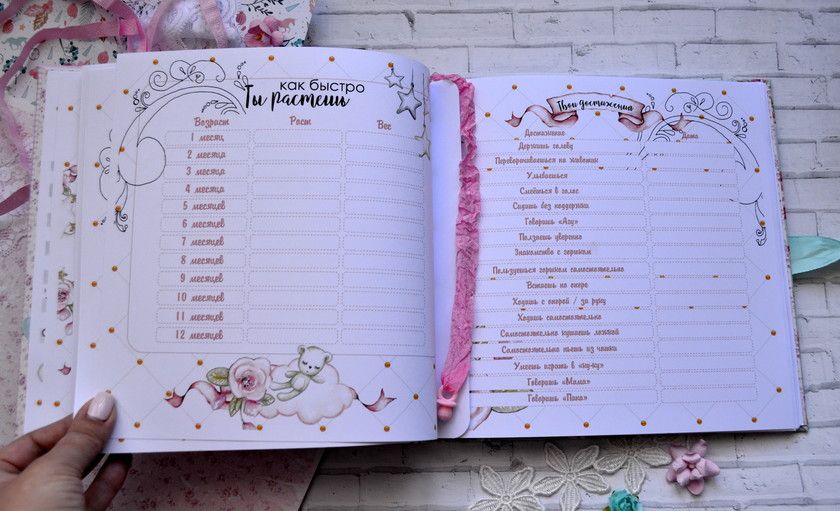 как быстро
Ты растешь
Возраст Рост Вес
1 месяц
2 месяца
3 месяца
4 месяца
5 месяцев
6 месяцев
7 месяцев
8 месяцев
9 месяцев
10 месяцев
11 месяцев
12 месяцев
Твои достижения
Достижение Дата
Держишь голову
Переворачиваешься на животик
Улыбаешься
Смеёшься в голос
Сидишь без поддержки
Говоришь «Агу»
Ползаешь уверенно
Знакомство с горшком
Пользуешься горшком самостоятельно
Встаешь на опоре
Ходишь с опорой / за руку
Ходишь самостоятельно
Самостоятельно кушаешь ложкой
Самостоятельно пьешь из чашки
Умеешь играть в «ку-ку»
Говоришь «Мама»
Говоришь «Папа»